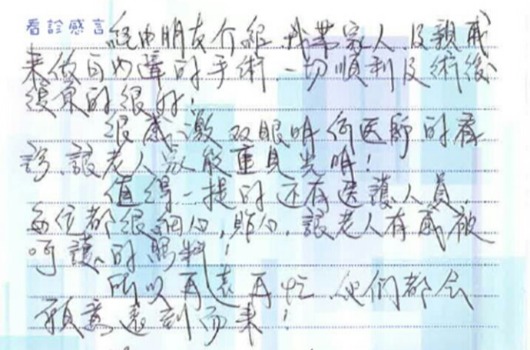 看診感言 經由朋友介紹,我帶家人及親戚
來做白內障的手術,一切順利及術後
復原的很好!
很感激双眼明何医師的看
診,讓老人家能重見光明!
值得一提的还有医護人員,
每位都很細心,貼心,讓老人有感被
呵護的照料!
所以再遠再忙,他們都会
願意遠到而來!